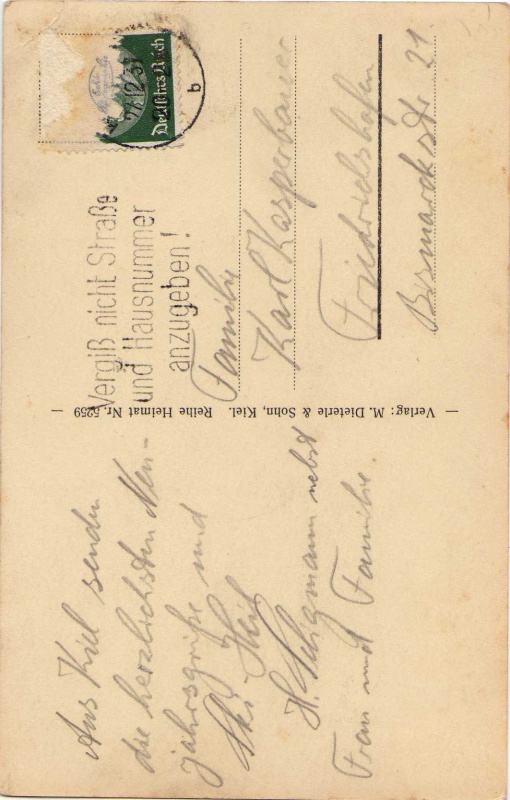 Aus Kiel senden
die herzlichsten Neu-
jahrsgrüße und
Ski Heil
H.
nebst
Frau und Familie.
Verlag: M. Dieterle & Sohn, Kiel. Reihe Heimat Nr. 5259
Vergiß nicht Straße
und Hausnummer
anzugeben!
Deutsches Reich
b
Familie
Karl Kasperbauer
Friedrichshafen
Bismarckstr 21